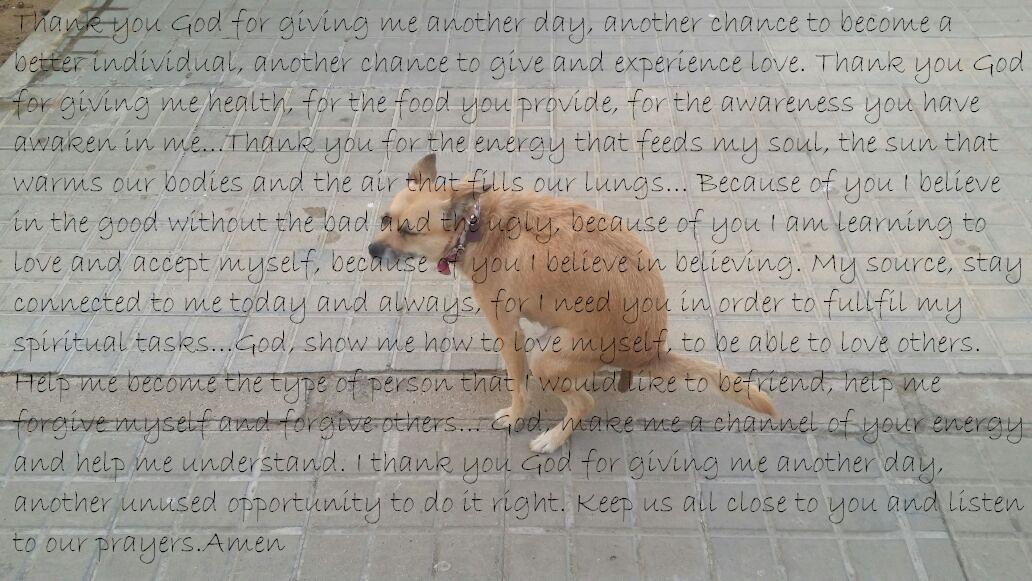 Thank you God for giving me another day, another chance to become a
better individual, another chance to give and experience love. Thank you God
for giving me health, for the food you provide, for the awareness you have
awaken in me...Thank you for the energy that feeds my soul, the sun that
warms our bodies and the air that fills our lungs... Because of you I believe
in the good without the bad and the ugly, because of you I am learning to
love and accept myself, because of you I believe in believing. My source, stay
connected to me today and always, for I need you in order to fullfil my
spiritual tasks...God, show me how to love myself, to be able to love others.
Help me become the type of person that I would like to befriend, help me
forgive myself and forgive others... God, make me a channel of your energy
and help me understand. I thank you God for giving me another day,
another unused opportunity to do it right. Keep us all close to you and listen
to our prayers.Amen